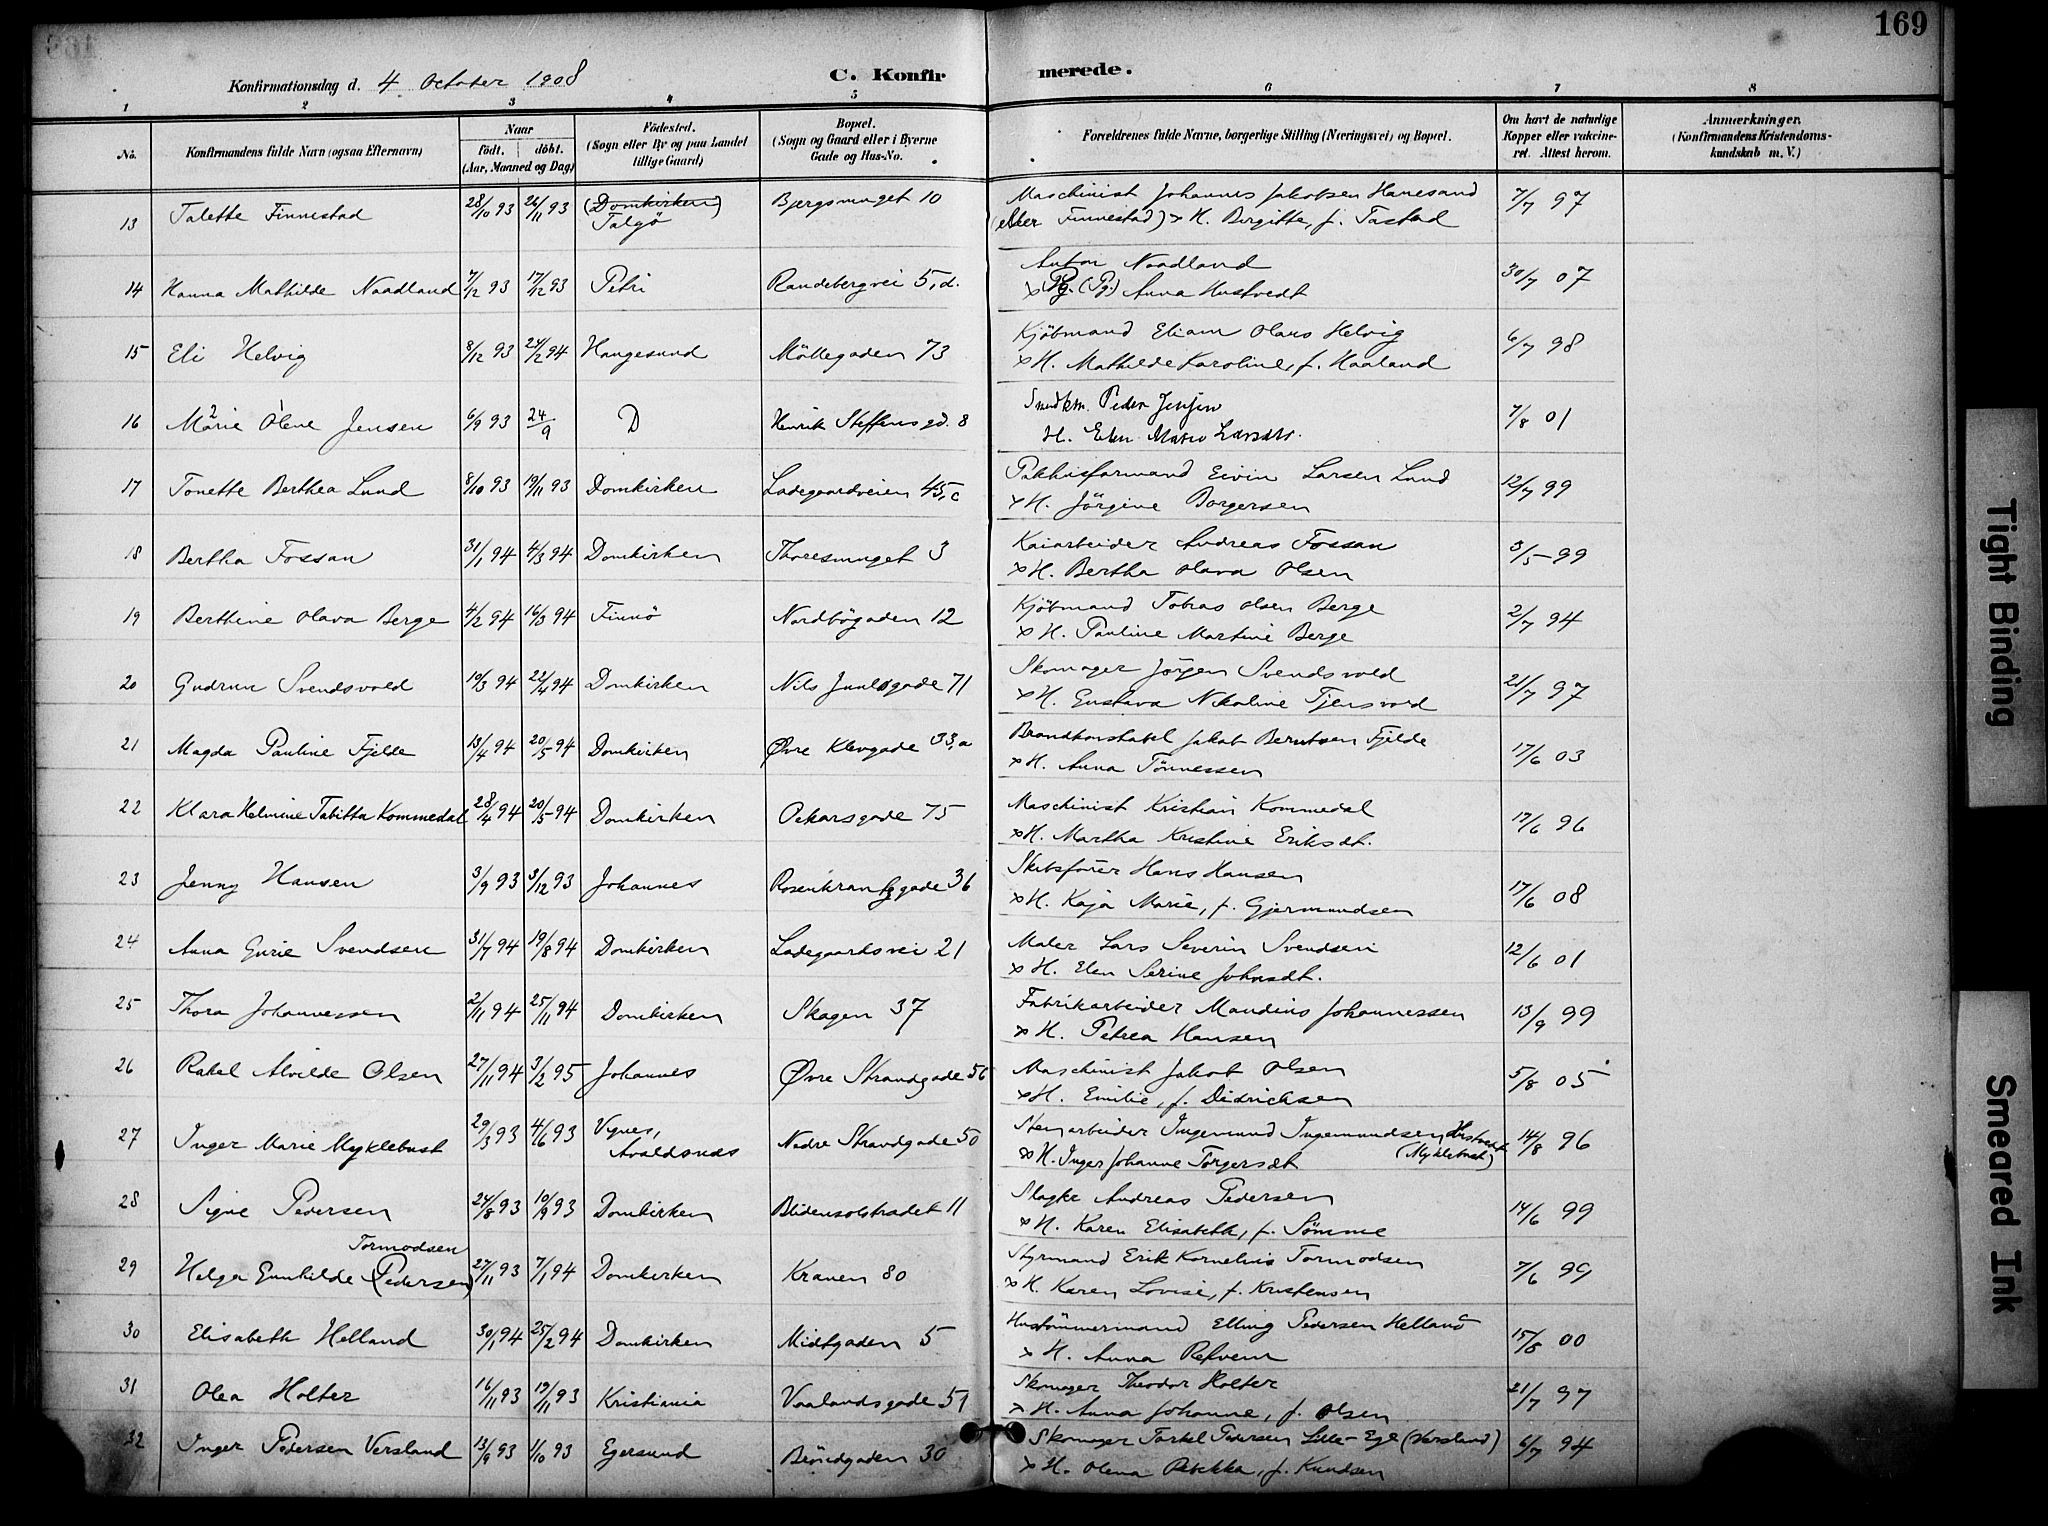 169
Konfirmationsdag d. 4 October 1908
C. Konfirmerede.
1 2 3 4 5 6 7 8
No. Konfirmandens fulde Navn (ogsaa Efternavn) Naar födt. döbt. (Aar, Maaned og Dag) Födested. (Sogn eller By og paa Landet tillige Gaard) Bopæl. (Sogn og Gaard eller i Byerne Gade og Hus-No. Forældrenes fulde Navne, borgerlige Stilling (Næringsvei) og Bopæl. Om havt de naturlige Kopper eller vakcineret. Attest herom. Anmærkninger. (Konfirmandens Kristendomskundskab m. V.)
13 Talette Finnestad 28/10 93 26/11 93 (Domkirken) Talgö Bjergsmuget 10 Maschinist Johannes Jakobsen Hanesand 7/7 97
(eller Finnestad) x H. Birgitte, f. Tastad
14 Hanna Mathilde Naadland 7/12 93 17/12 93 Petri Randebergvei 5, d. Anton Naadland 30/7 07
x Pg. (Pg.) Anna Hustvedt
15 Eli Helvig 8/12 93 24/2 94 Haugesund Möllegaden 73 Kjöbmand Eliam Olaus Helvig 6/7 98
x H. Mathilde Karoline, f. Haaland
16 Marie 2 Olene 1 Jensen 6/9 93 24/9 D Henrik Steffens gd. 8 Smedkm. Peder Jensen 7/8 01
H. Elen Marie Larsdtr.
17 Tonette Berthea Lund 8/10 93 19/11 93 Domkirken Ladegaardveien 45, c Pakhusformand Eivin Larsen Lund 12/7 99
x H. Jörgine Borgersen
18 Bertha Fossan 31/1 94 4/3 94 Domkirken Thoresmuget 3 Kaiarbeider Andreas Fossan 3/5 99
x H. Bertha Olava Olsen
19 Berthine Olava Berge 4/2 94 16/3 94 Finnö Nordbögaden 12 Kjöbmand Tobias Olsen Berge 2/7 94
x H. Pauline Martine Berge
20 Gudrun Svendsvold 10/3 94 22/4 94 Domkirken Nils Juulsgade 71 Skomager Jörgen Svendsvold 21/7 97
x H. Gustava Nikoline Tjensvold
21 Magda Pauline Fjelde 13/4 94 20/5 94 Domkirken Øvre Klevgade 33, a Brandkonstabel Jakob Berntsen Fjelde 17/6 03
x H. Anna Tönnessen
22 Klara Helmine Tabitta Kommedal 28/4 94 20/5 94 Domkirken Oskarsgade 75 Maschinist Kristian Kommedal 17/6 96
x H. Martha Kristine Eriksdt.
23 Jenny Hansen 3/9 93 3/12 93 Johannes Rosenkrantzgade 36 Skibsförer Hans Hansen 17/6 08
x H. Kaja Marie, f. Gjermundsen
24 Anna Gurie Svendsen 31/7 94 19/8 94 Domkirken Ladegaardsvei 21 Maler Lars Severin Svendsen 12/6 01
x H. Elen Serine Johnsdt.
25 Thora Johannessen 2/11 94 25/11 94 Domkirken Skagen 37 Fabrikarbeider Maudius Johannessen 13/9 99
x H. Petrea Hansen
26 Rakel Alvilde Olsen 27/11 94 3/2 95 Johannes Øvre Strandgade 56 Maschinist Jakob Olsen 5/8 05
x H. Emilie, f. Didricksen
27 Inger Marie Myklebust 29/3 93 4/6 93 Vignes, Avaldsnes Nedre Strandgade 50 Stenarbeider Ingemund Ingemundsen 14/8 96
x H. Inger Johanne Torgersdt (Myklebust)
28 Signe Pedersen 24/8 93 10/9 93 Domkirken Blidensolstrædet 11 Slagter Andreas Pedersen 14/6 99
x H. Karen Elisabeth, f. Sömme
Tormodsen
29 Helga Gunhilde (Pedersen) 27/11 93 7/1 94 Domkirken Kranen 80 Styrmand Erik Kornelius Tormodsen 7/6 99
x H. Karen Lovise, f. Kristensen
30 Elisabeth Helland 30/1 94 25/2 94 Domkirken Midtgaden 5 Hustömmermand Elling Pedersen Helland 15/8 00
x H. Anna Refvem
31 Olea Holter 16/11 93 19/11 93 Kristiania Vaalandsgade 51 Skomager Theodor Holter 21/7 97
x H. Anna Johanne, f. Olsen
32 Inger Pedersen Versland 13/9 93 1/10 93 Egersund Bröndgaden 30 Skomager Torkel Pedersen Lille-Ege (Versland) 6/7 94
x H. Olena Rebekka, f. Knudsen
Tight Binding
Smeared Ink